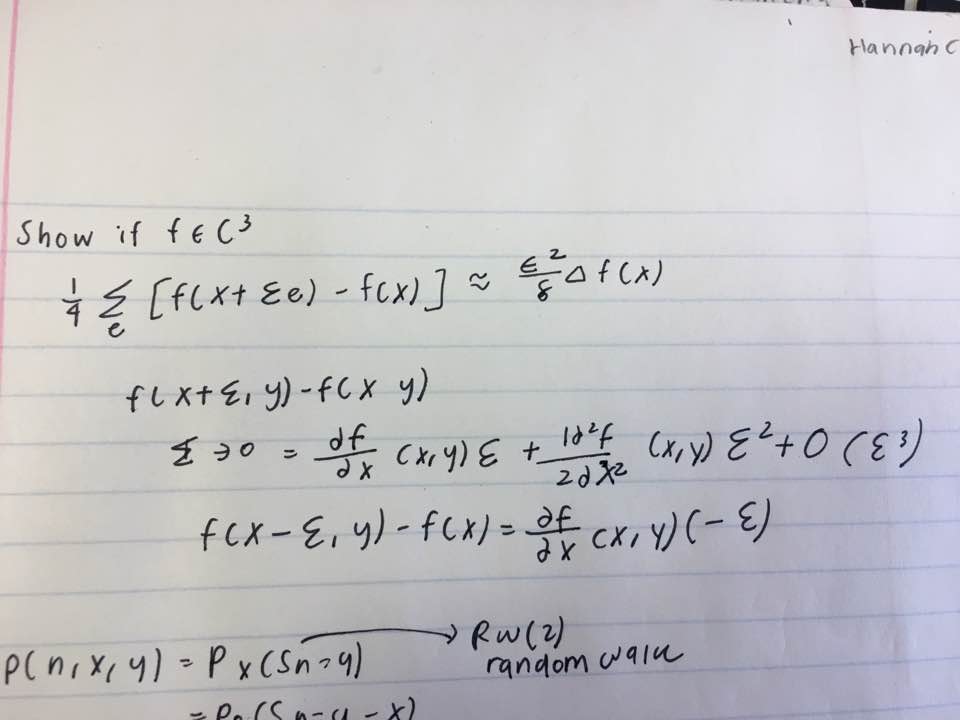 Hannah C
Show if f ∈ C³
1/4 Σ_e [f(x + εe) - f(x)] ≈ ε²/8 Δ f(x)
f(x + ε, y) - f(x y)
ε → 0 = ∂f/∂x (x,y) ε + 1∂²f/2∂x² (x,y) ε² + O(ε³)
f(x - ε, y) - f(x) = ∂f/∂x (x,y)(-ε)
p(n,x,y) = P_x(Sn = y) → RW(2)
random walk
= P₀(Sn = y - x)